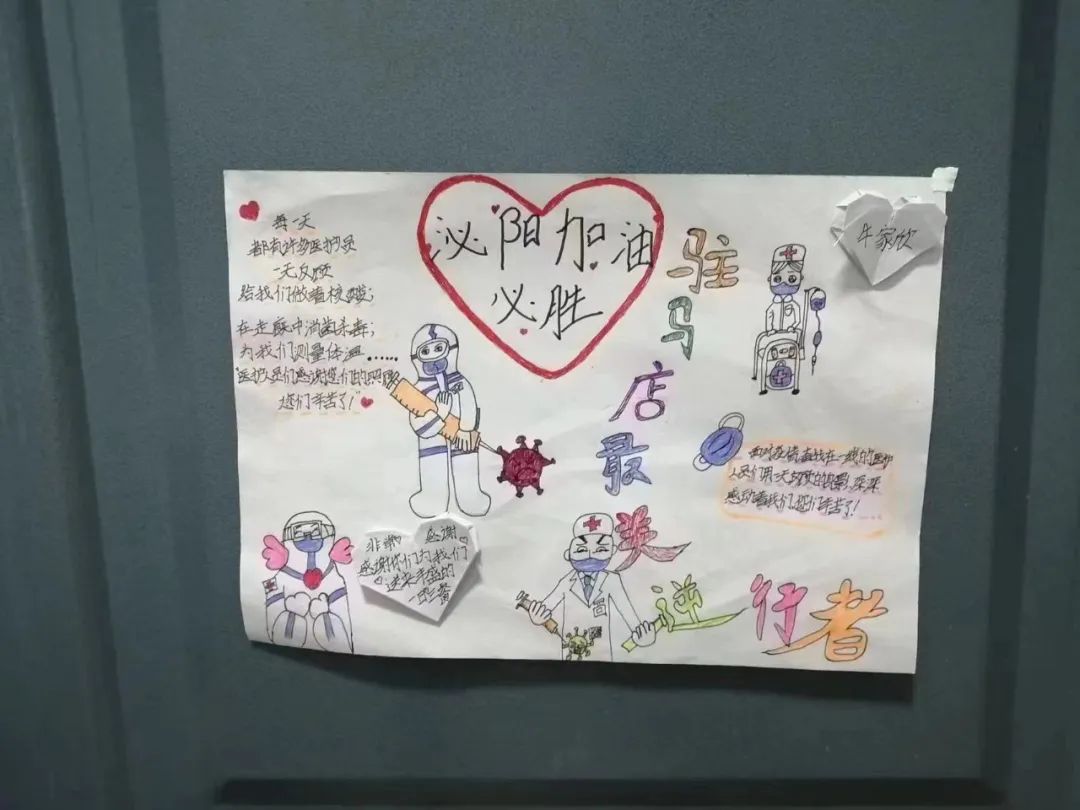 每一天
都有许多医护员
一天反烦
给我们做着核酸；
在走廊中消菌杀毒；
为我们测量体温……
"医护人员们感谢您们的照顾
您们辛苦了！"
泌阳加油
必胜
驻马店最美逆行者
牛家欣
面对疫情奋战在一线的医护
人员们用
感动着我们您们辛苦了！
非常 感谢
感谢你们为我们
送来丰盛的
晚餐